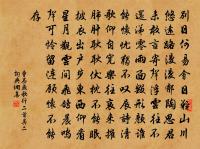 別日何易會日難山川
悠遠路漫漫郁陶思君
未敢言寄聲浮雲往不
還涕零雨面毀形顏誰
能懷憂獨不歎展詩清
歌聊自寬樂往哀來摧
肺肝耿耿伏枕不能眠
披衣出戶步東西仰看
星月觀雲間飛鶬晨鳴
聲可憐留連顧懷不能
存
燕歌行二首其二
詞典網集